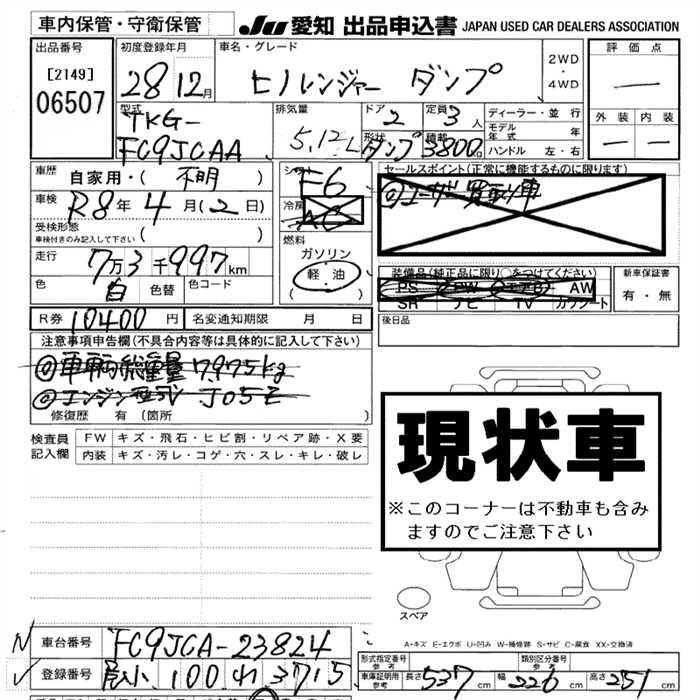 車内保管・守衛保管
JU 愛知 出品申込書 JAPAN USED CAR DEALERS ASSOCIATION
出品番号 初度登録年月 車名・グレード 評価点
[2149] 28 12月 ヒノレンジャー ダンプ 2WD・4WD —
06507
型式 排気量 ドア 定員 ディーラー・並行 外装 内装
TKG- 2 3人 モデル年式 年 — —
FC9JCAA 5,12L 形状 ダンプ 積載 3800 ハンドル 左・右
車歴 自家用・( 不明 ) シフト F6 セールスポイント(正常に機能するものに限ります)
車検 R8年 4月(2日) 冷房 AC ◎ユーザー買取り車
受検形態
車検付きのみ記入して下さい ( ) 燃料
走行 7万3千997km ガソリン 装備品(純正品に限り○をつけてください) 新車保証書
色 白 色替 色コード 軽・油 PS PW エアB AW 有・無
( ) SR ナビ TV カワシート
R券 10400円 名変通知期限 月 日 後日品
注意事項申告欄(不具合内容等は具体的に記入して下さい)
◎車両総重量 7975kg
◎エンジン型式 J05E
修復歴 有(箇所 )
現状車
検査員 FW キズ・飛石・ヒビ割・リペア跡・X要
記入欄 内装 キズ・汚レ・コゲ・穴・スレ・キレ・破レ
※このコーナーは不動車も含み
ますのでご注意下さい
スペア
A-キズ E-エクボ U-凹み W-補修跡 S-サビ C-腐食 XX-交換済
車台番号 FC9JCA-23824
形式指定番号 参考 類別区分番号 参考
登録番号 100 れ 3715
車庫証明用 参考 長さ 537cm 幅 226cm 高さ 251cm